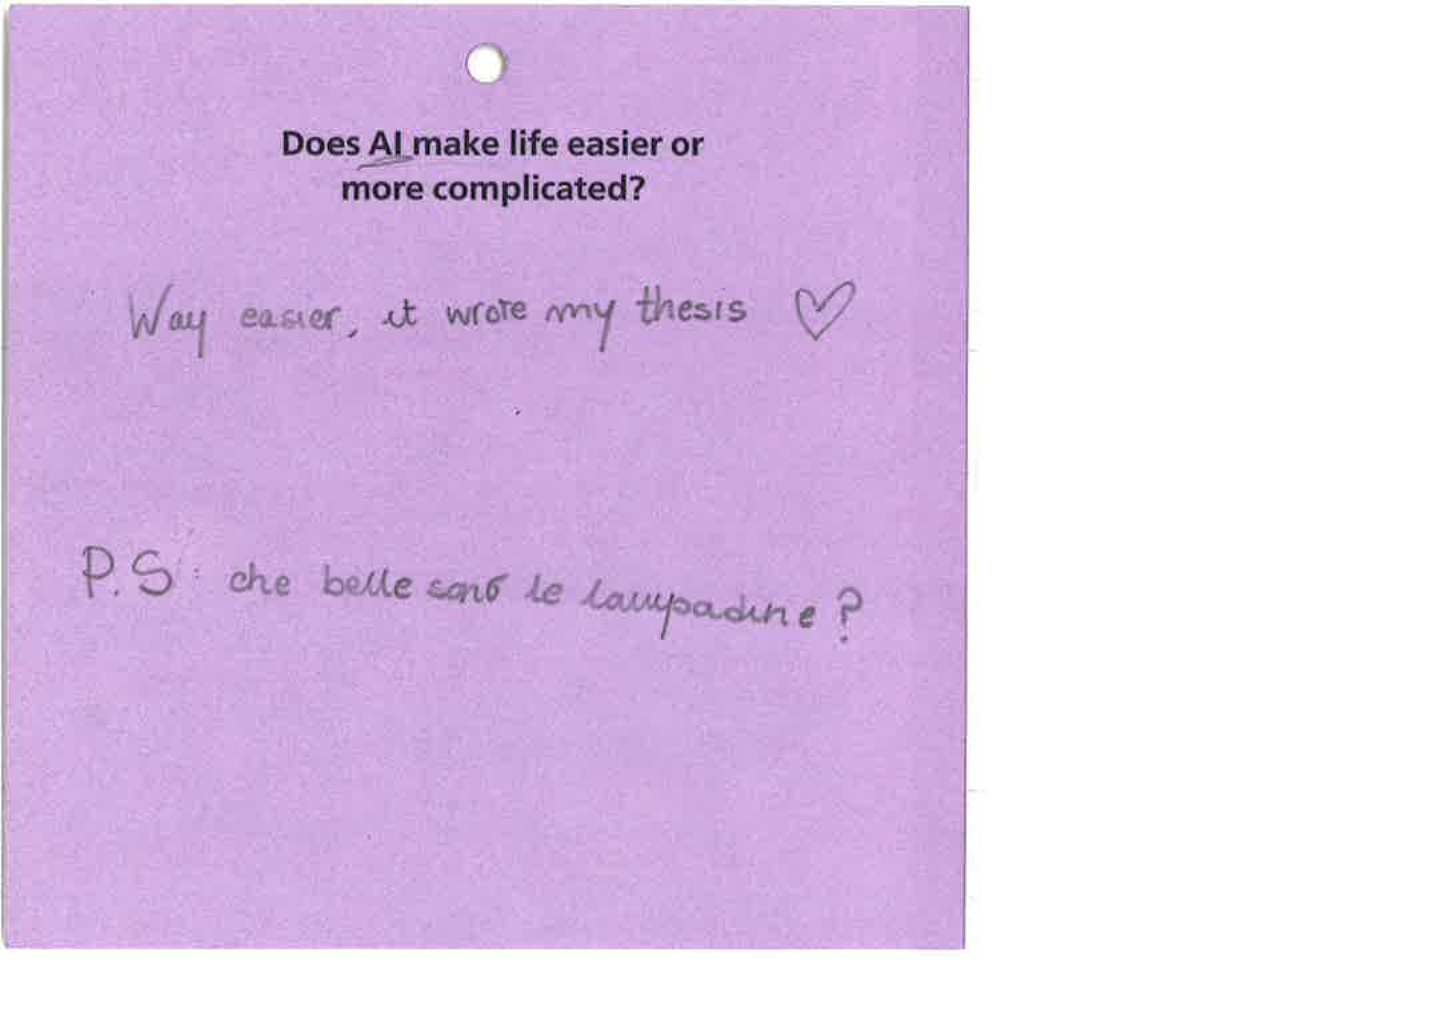 Does AI make life easier or
more complicated?
Way easier, it wrote my thesis ♡
P.S: che belle sono le lampadine?